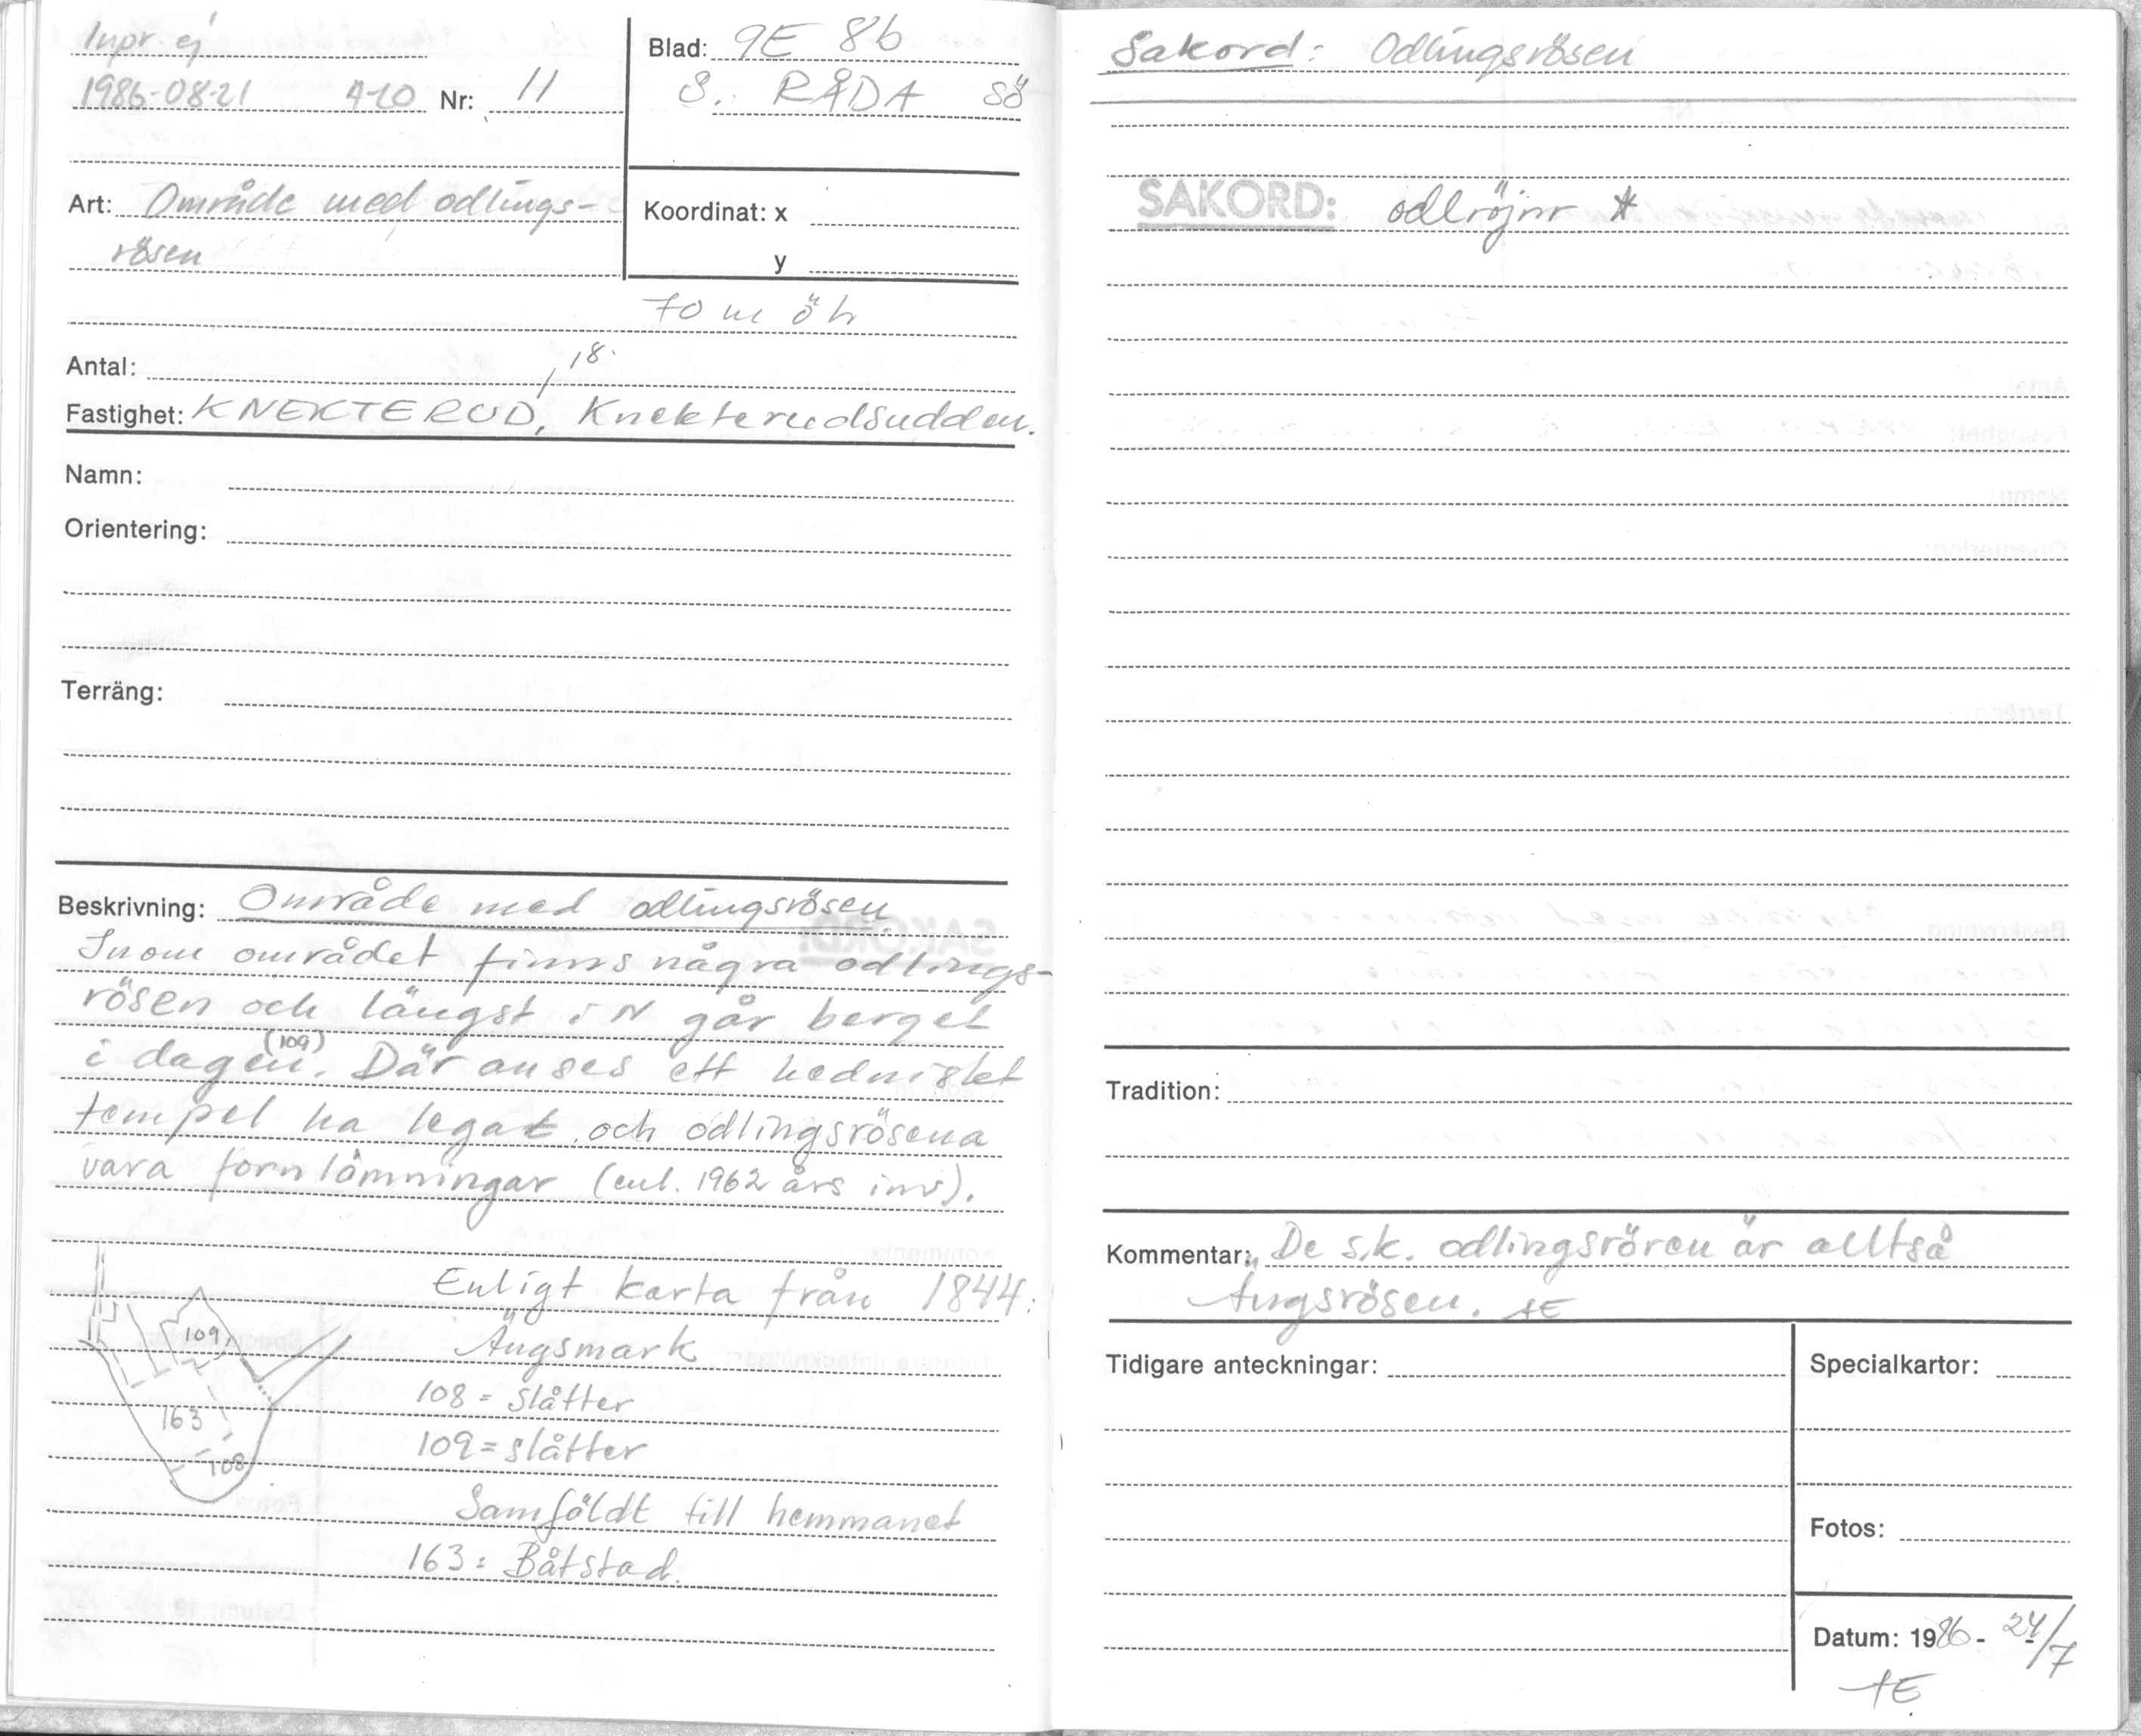 Inpr. ej
1986-08-21 A10 Nr: 11
Blad: 9E 8b
S. RÅDA SÖ
Art: Område med odlings-
rösen
Koordinat: x
y
70 m öh
Antal:
,8
Fastighet: KNEKTERUD, Knekterudsudden.
Namn:
Orientering:
Terräng:
Beskrivning: Område med odlingsrösen.
Inom området finns några odlings-
rösen och längst i N går berget
(109)
i dagen. Där anses ett hedniskt
tempel ha legat och odlingsrösena
vara fornlämningar (enl. 1962 års inv).
Enligt karta från 1844:
Ängsmark
108 = slåtter
109 = slåtter
Samfäldt till hemmanet
163 = Båtstad.
109
163
108
Sakord: Odlingsrösen
SAKORD: odlröjnr *
Tradition:
Kommentar: De s.k. odlingsrören är alltså
Ängsrösen. AE
Tidigare anteckningar:
Specialkartor:
Fotos:
Datum: 1986 - 24/7
AE